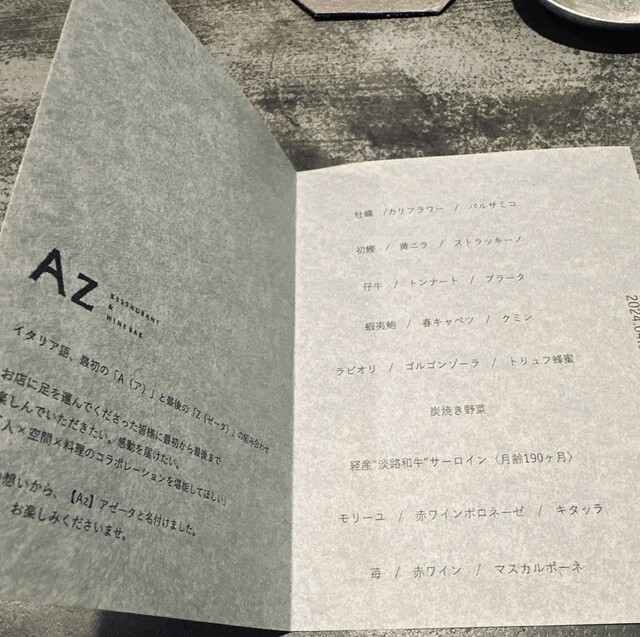 Az
RESTAURANT
&
WINE BAR
イタリア語、最初の「A（ア）」と最後の「Z（ゼータ）」の組み合わせ
お店に足を運んでくださった皆様に最初から最後まで
楽しんでいただきたい。感動を届けたい。
人×空間×料理のコラボレーションを堪能してほしい」
想いから、【Az】アゼータと名付けました。
お楽しみくださいませ。
牡蠣 /カリフラワー / バルサミコ
初鰹 / 黄ニラ / ストラッキーノ
仔牛 / トンナート / ブラータ
蝦夷鮑 / 春キャベツ / クミン
ラビオリ / ゴルゴンゾーラ / トリュフ蜂蜜
炭焼き野菜
経産"淡路和牛"サーロイン〈月齢190ヶ月〉
モリーユ / 赤ワインボロネーゼ / キタッラ
苺 / 赤ワイン / マスカルポーネ
2024.04.